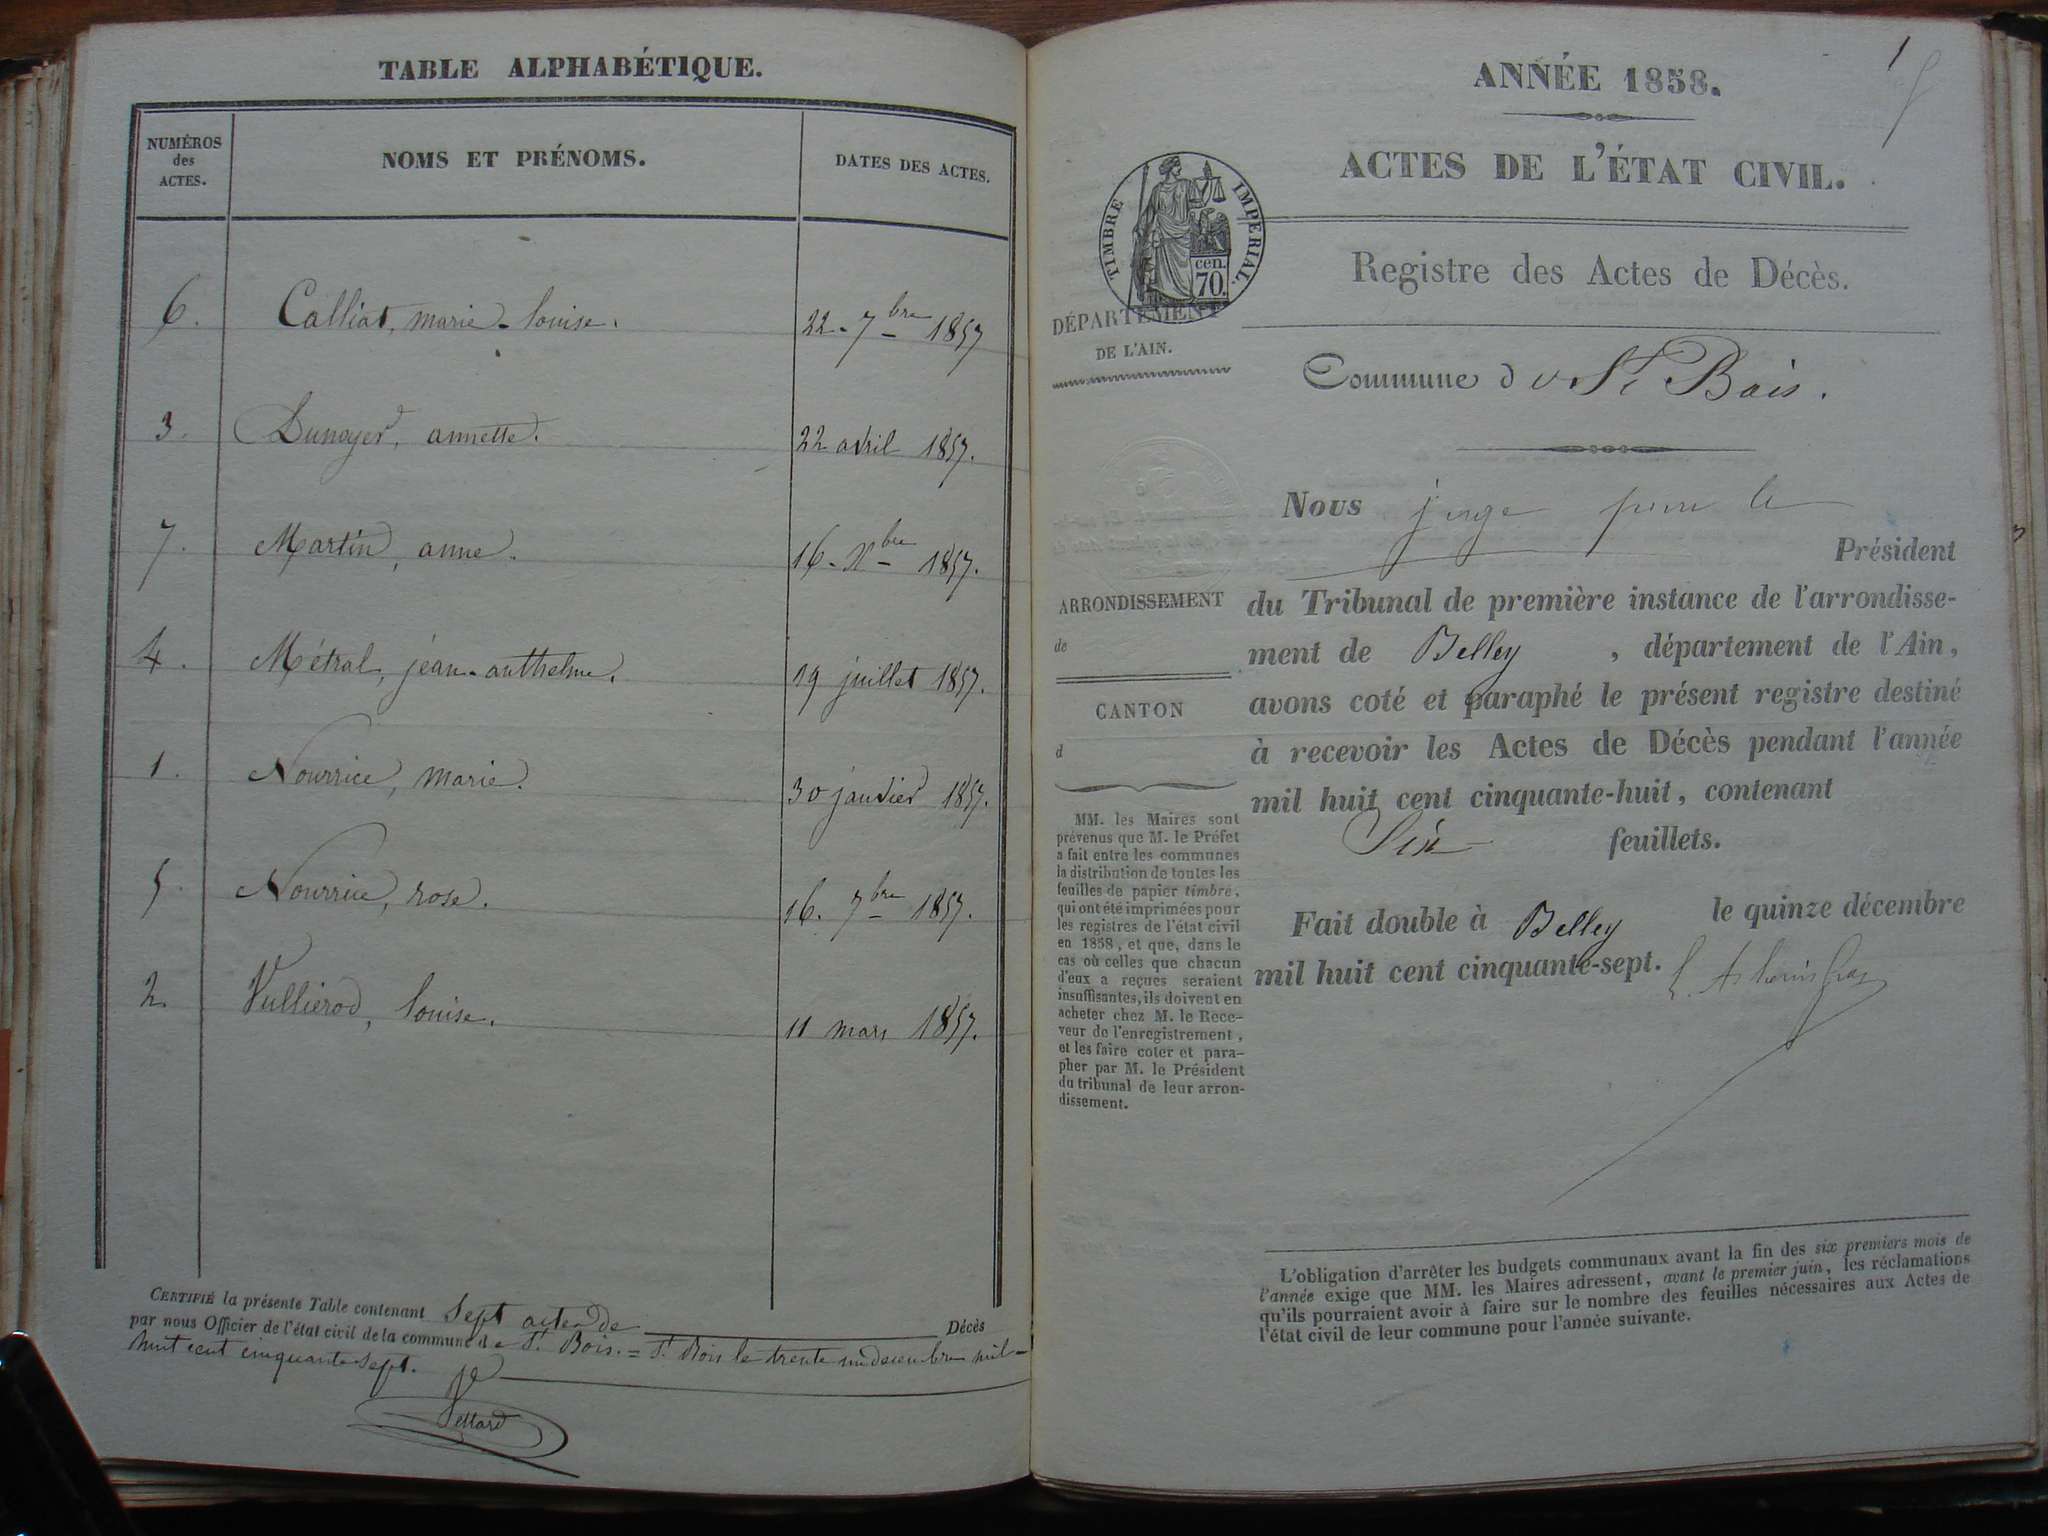 TABLE ALPHABÉTIQUE.
NUMÉROS des ACTES.
NOMS ET PRÉNOMS.
DATES DES ACTES.
6. Calliat, marie-louise. 22. 7bre 1857
3. Dunoyer, annette. 22 avril 1857.
7. Martin, anne. 16. Xbre 1857.
4. Métral, jean-anthelme. 19 juillet 1857.
1. Nourrice, marie. 30 janvier 1857.
5. Nourrice, rose. 16. 7bre 1857.
2. Vulliérod, louise. 11 mars 1857.
CERTIFIÉ la présente Table contenant Sept actes de Décès
par nous Officier de l'état civil de la commune de St. Bois. = St. Bois le trente un décembre mil-
huit cent cinquante sept.
ANNÉE 1858.
1
ACTES DE L'ÉTAT CIVIL.
TIMBRE IMPÉRIAL.
cen.
70.
Registre des Actes de Décès.
DÉPARTEMENT
DE L'AIN.
Commune d e St Bois.
Nous juge pour le
Président
du Tribunal de première instance de l'arrondisse-
ment de Belley, département de l'Ain,
avons coté et paraphé le présent registre destiné
à recevoir les Actes de Décès pendant l'année
mil huit cent cinquante-huit, contenant
Six feuillets.
Fait double à Belley le quinze décembre
mil huit cent cinquante-sept.
ARRONDISSEMENT
de
CANTON
d
MM. les Maires sont
prévenus que M. le Préfet
a fait entre les communes
la distribution de toutes les
feuilles de papier timbré,
qui ont été imprimées pour
les registres de l'état civil
en 1858, et que, dans le
cas où celles que chacun
d'eux a reçues seraient
insuffisantes, ils doivent en
acheter chez M. le Rece-
veur de l'enregistrement,
et les faire coter et para-
pher par M. le Président
du tribunal de leur arron-
dissement.
L'obligation d'arrêter les budgets communaux avant la fin des six premiers mois de
l'année exige que MM. les Maires adressent, avant le premier juin, les réclamations
qu'ils pourraient avoir à faire sur le nombre des feuilles nécessaires aux Actes de
l'état civil de leur commune pour l'année suivante.